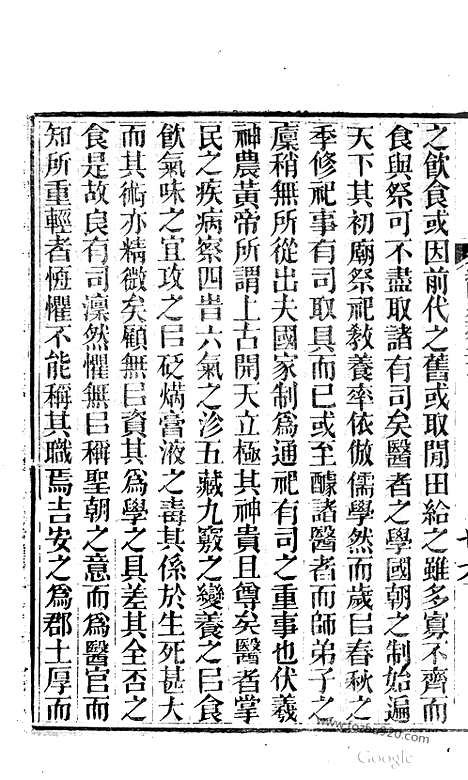 之飮食或因前代之舊或取閒田給之雖多寡不齊而
食與祭可不盡取諸有司矣醫者之學國朝之制始遍
天下其初廟祭祀敎養率依倣儒學然而歲㠯春秋之
季修祀事有司取具而已或至醵諸醫者而師弟子之
廩稍無所從出夫國家制爲通祀有司之重事也伏羲
神農黃帝所謂上古開天立極其神貴且尊矣醫者掌
民之疾病察四旹六氣之沴五藏九竅之變養之㠯食
飮氣味之宜攻之㠯砭焫膏液之毒其係於生死甚大
而其術亦精微矣顧無㠯資其爲學之具差其全否之
食是故良有司凜然懼無㠯稱聖朝之意而爲醫官而
知所重輕者恆懼不能稱其職焉吉安之爲郡土厚而
www.fozhu920.com
Google